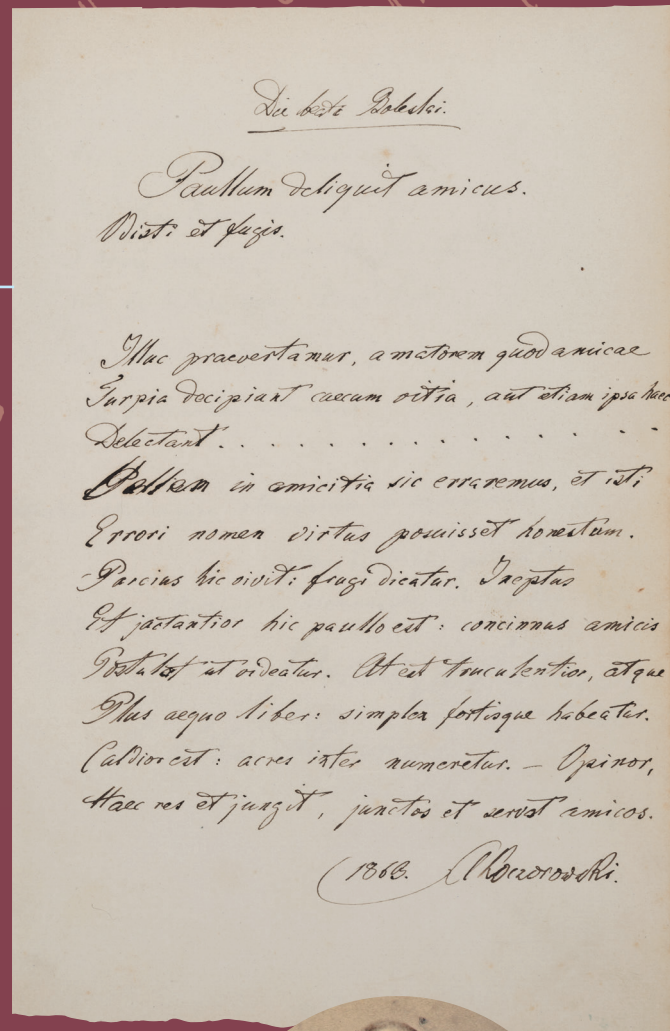 Paullum deliquit amicus.
Odisti et fugis.
Illuc praevertamur, amatorem quod amicae
Turpia decipiunt caecum vitia, aut etiam ipsa haec
Delectant . . . . . . . . . . . . . .
Vellem in amicitia sic erraremus, et isti
Errori nomen virtus posuisset honestum.
Parcius hic vivit: frugi dicatur. Ineptus
Et jactantior hic paullo est: concinnus amicis
Postulat ut videatur. At est truculentior, atque
Plus aequo liber: simplex fortisque habeatur.
Caldior est: acres inter numeretur. — Opinor,
Haec res et jungit, junctos et servat amicos.
1863.